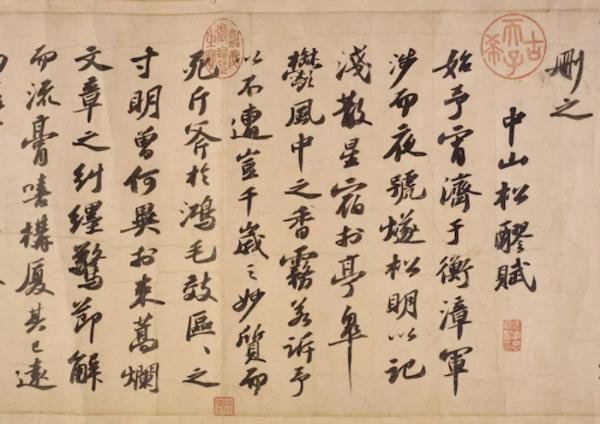 刪之
中山松醪賦
始予宵濟于衡漳軍
涉而夜號燧松明以記
淺散星宿於亭皋
鬱風中之香霧若訴予
以不遭豈千歲之妙質而
死斤斧於鴻毛效區〻之
寸明曾何異於束蒿爛
文章之糾纆驚節解
而流膏嘻構廈其已遠
古希天子